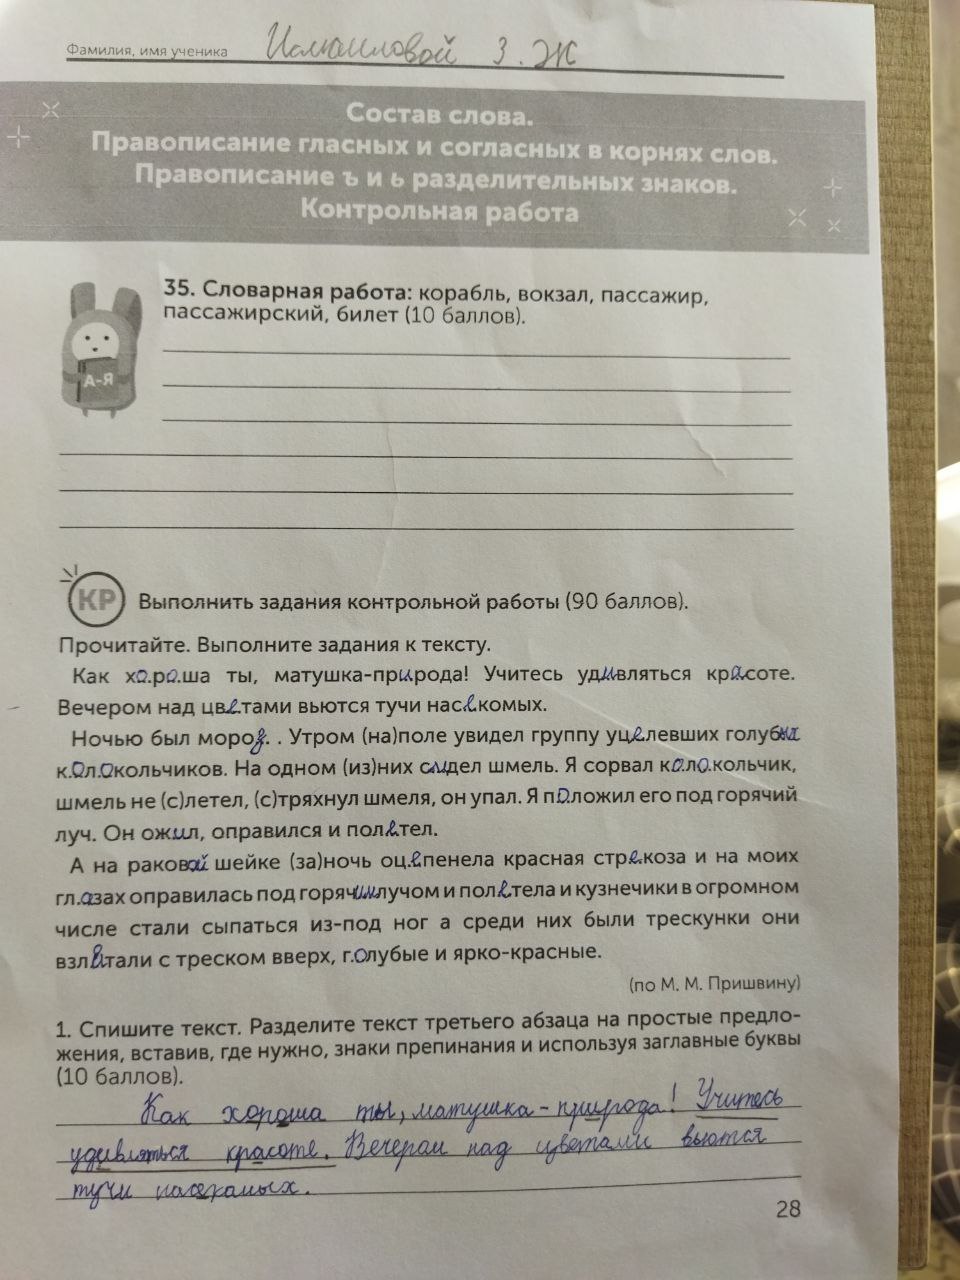 Фамилия, имя ученика Исмаиловой З. Ж
Состав слова.
Правописание гласных и согласных в корнях слов.
Правописание ъ и ь разделительных знаков.
Контрольная работа
35. Словарная работа: корабль, вокзал, пассажир,
пассажирский, билет (10 баллов).
А-Я
КР Выполнить задания контрольной работы (90 баллов).
Прочитайте. Выполните задания к тексту.
Как хо.ро.ша ты, матушка-природа! Учитесь удивляться красоте.
Вечером над цветами вьются тучи насекомых.
Ночью был мороз. . Утром (на)поле увидел группу уцелевших голубых
к.ол.окольчиков. На одном (из)них сидел шмель. Я сорвал ко.ло.кольчик,
шмель не (с)летел, (с)тряхнул шмеля, он упал. Я положил его под горячий
луч. Он ожил, оправился и полетел.
А на раковой шейке (за)ночь оц.епенела красная стре.коза и на моих
гл.азах оправилась под горячим лучом и полетела и кузнечики в огромном
числе стали сыпаться из-под ног а среди них были трескунки они
взлетали с треском вверх, г.олубые и ярко-красные.
(по М. М. Пришвину)
1. Спишите текст. Разделите текст третьего абзаца на простые предло-
жения, вставив, где нужно, знаки препинания и используя заглавные буквы
(10 баллов).
Как хороша ты, матушка-природа! Учитесь
удивляться красоте. Вечером над цветами вьются
тучи насекомых.
28